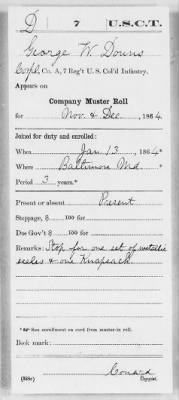 D 7 U.S.C.T.
George W Downs
Corpl, Co. A, 7 Reg't U. S. Col'd Infantry.
Appears on
Company Muster Roll
for Nov. & Dec., 1864.
Joined for duty and enrolled:
When Jan 13, 1864*
Where Baltimore Md.
Period 3 years.*
Present or absent Present
Stoppage, $ 100 for
Due Gov't $ 100 for
Remarks: Stop for one set of metallic
scales & one Knapsack
* See enrollment on card from muster-in roll.
Book mark:
Conard
(858c) Copyist.